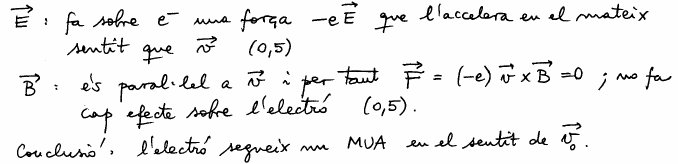 E⃗ : fa sobre e⁻ una força -eE⃗ que l'accelera en el mateix
sentit que v⃗ (0,5)
B⃗ : és paral·lel a v⃗ i per tant F⃗ = (-e) v⃗ x B⃗ = 0 ; no fa
cap efecte sobre l'electró (0,5).
Conclusió: l'electró segueix un MUA en el sentit de v⃗₀.